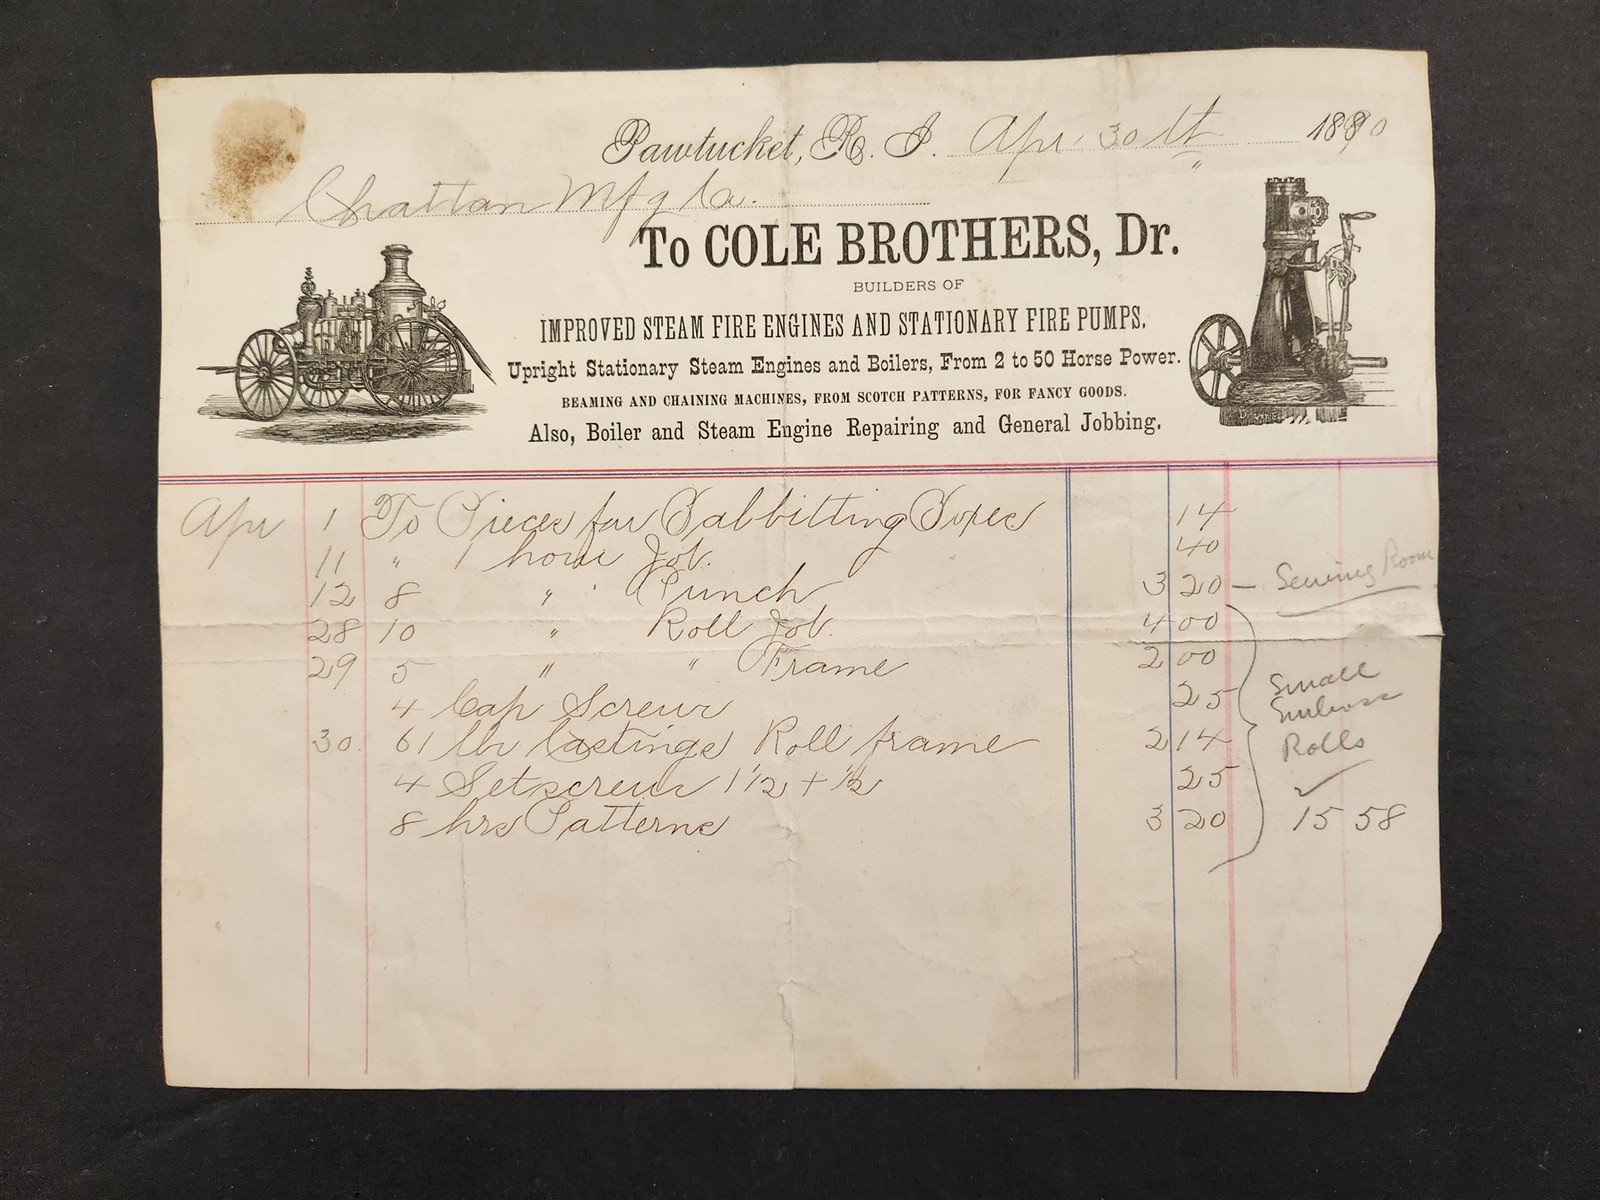 Pawtucket, R. I. Apr 30th 1890
Chattan Mfg Co.
To COLE BROTHERS, Dr.
BUILDERS OF
IMPROVED STEAM FIRE ENGINES AND STATIONARY FIRE PUMPS.
Upright Stationary Steam Engines and Boilers, From 2 to 50 Horse Power.
BEAMING AND CHAINING MACHINES, FROM SCOTCH PATTERNS, FOR FANCY GOODS.
Also, Boiler and Steam Engine Repairing and General Jobbing.
Apr 1 To Pieces for Babbitting 14
11 " 1 hour Job. 40
12 8 " Punch 3 20 — Sewing Room
28 10 " Roll Job. 4 00
29 5 " " Frame 2 00
4 Cap Screws 25
Small
Rolls
30 61 lbs Castings Roll frame 2 14
4 Setscrews 1 1/2 + 1/2 25
8 hrs Patterns 3 20
15 58